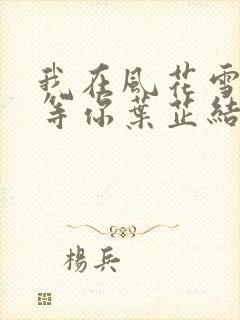 我在風花雪
等你葉芷結
楊兵